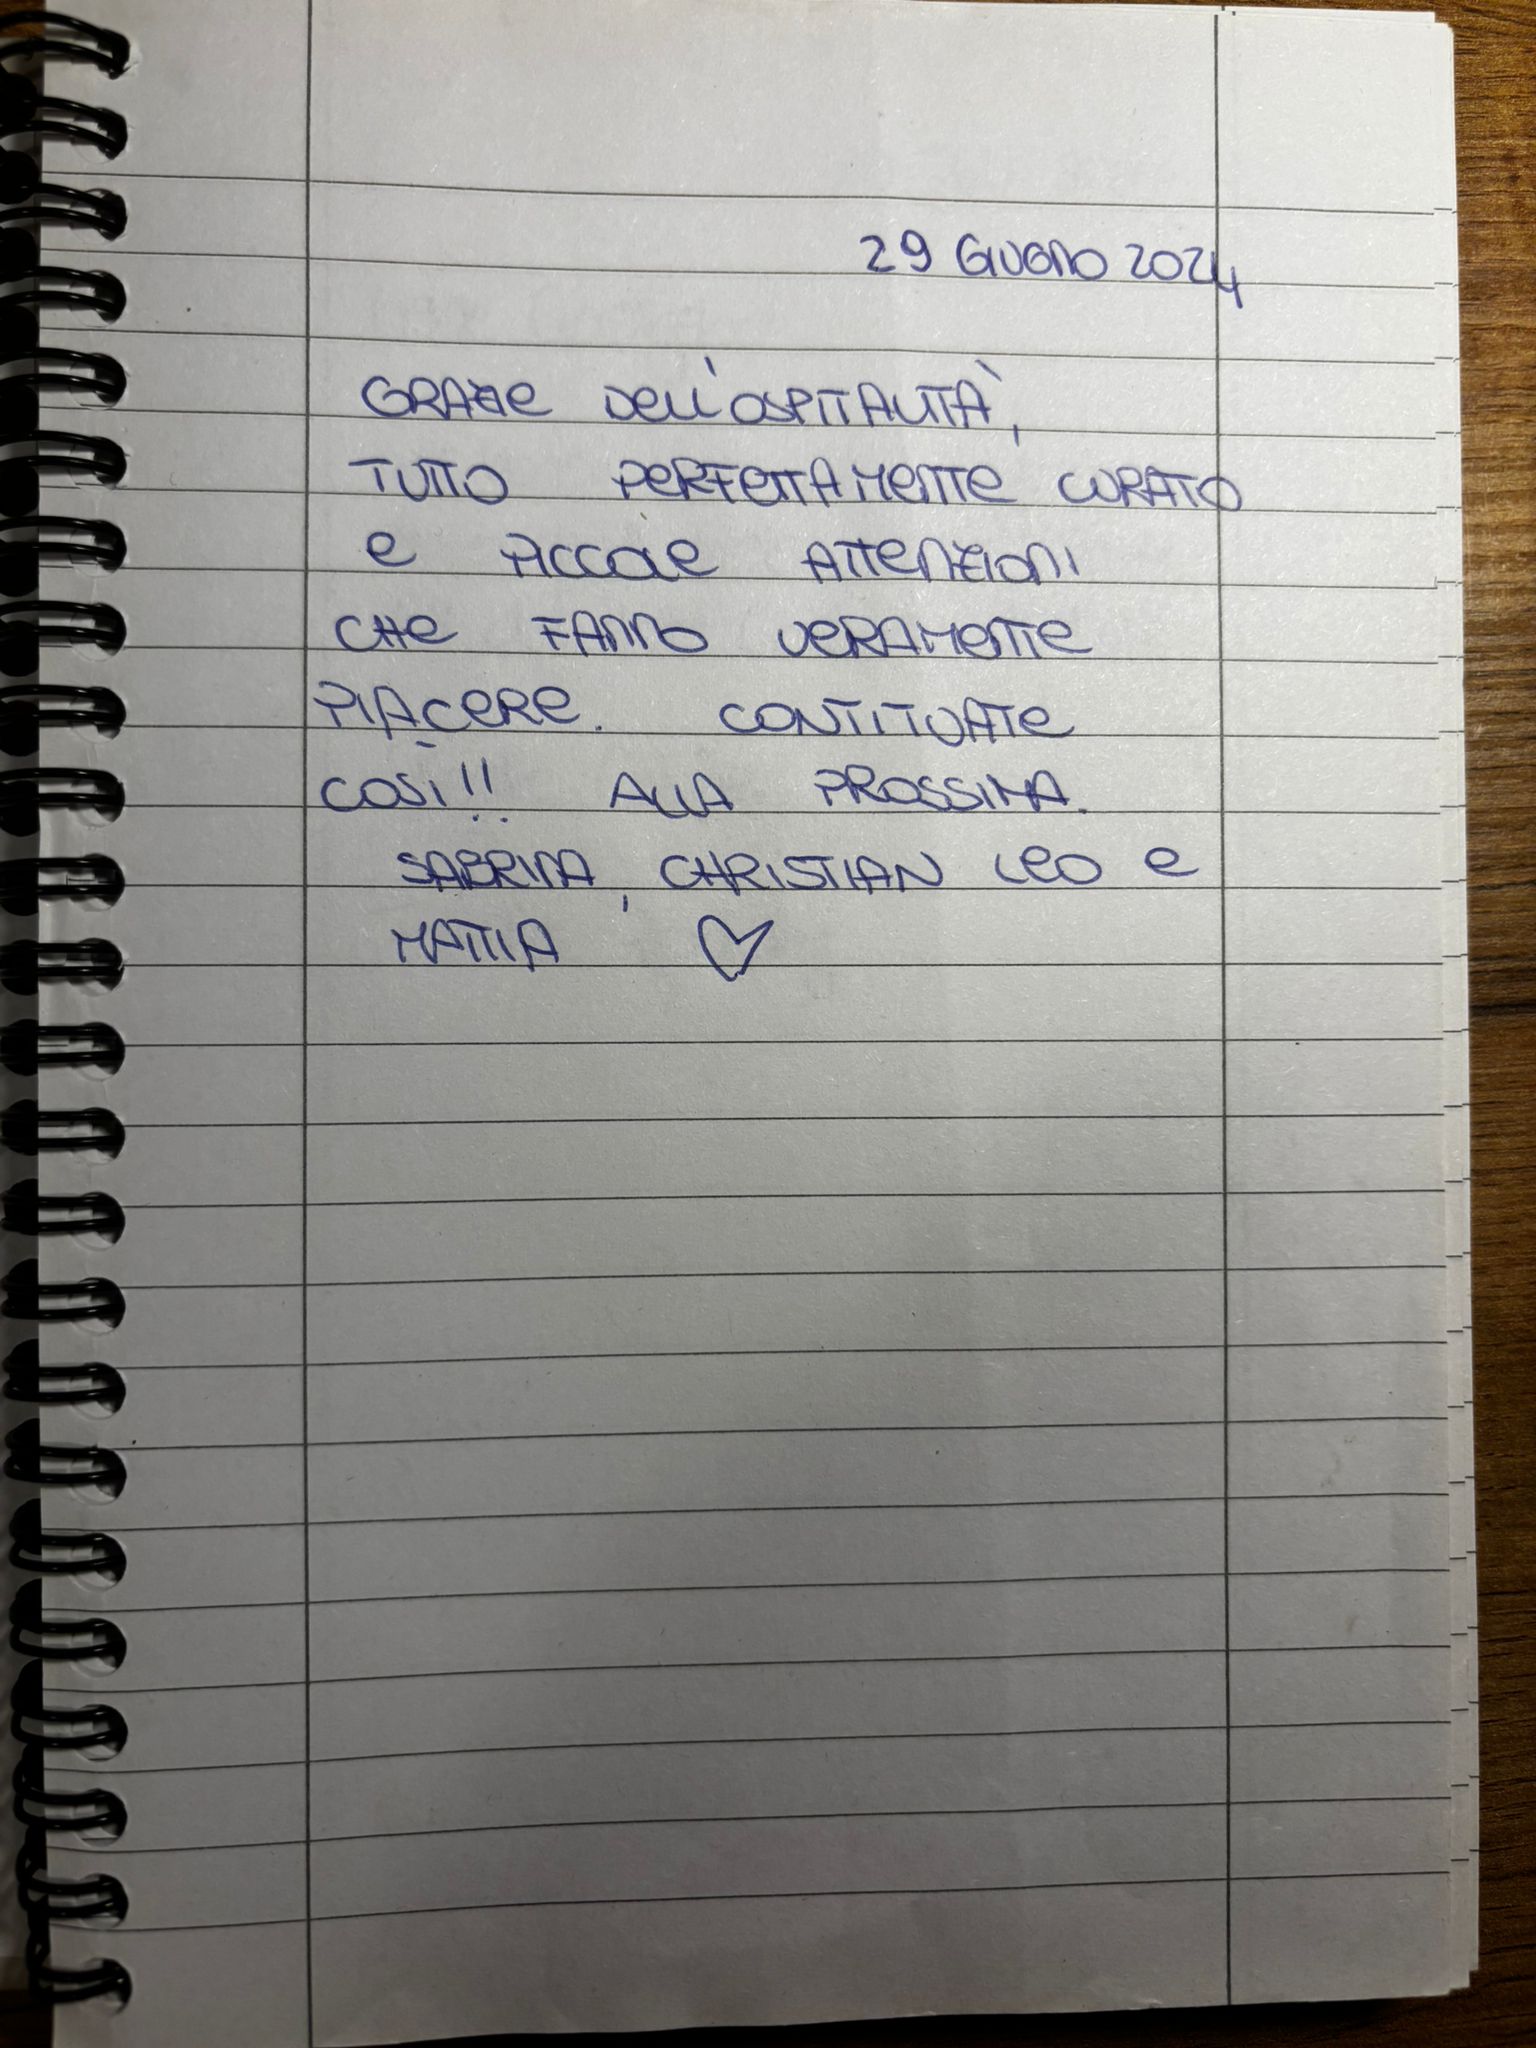 29 GIUGNO 2024
GRAZIE DELL'OSPITALITÀ,
TUTTO PERFETTAMENTE CURATO
E PICCOLE ATTENZIONI
CHE FANNO VERAMENTE
PIACERE. CONTITUATE
COSÌ!! ALLA PROSSIMA.
SABRINA, CHRISTIAN LEO E
MATTIA ♡